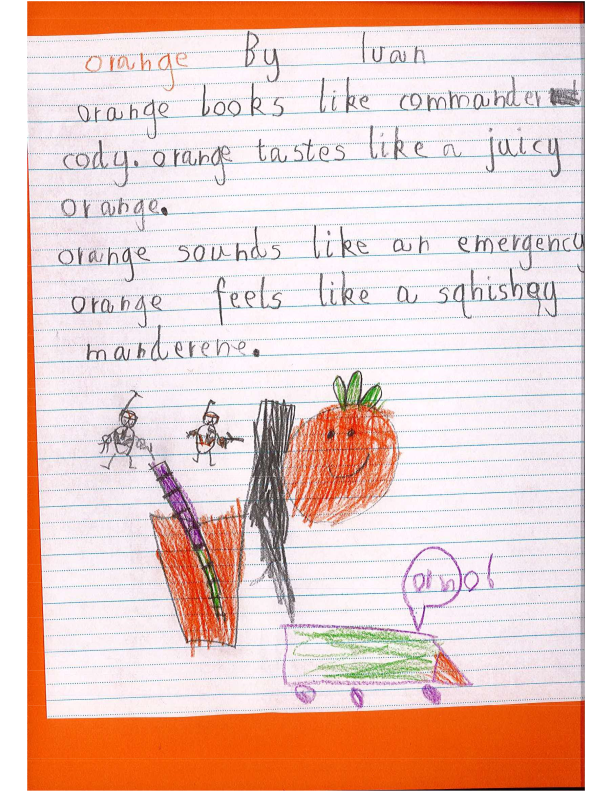 orange By Ivan
orange looks like commander
cody. orange tastes like a juicy
orange.
orange sounds like an emergency
orange feels like a sqhishey
manderene.